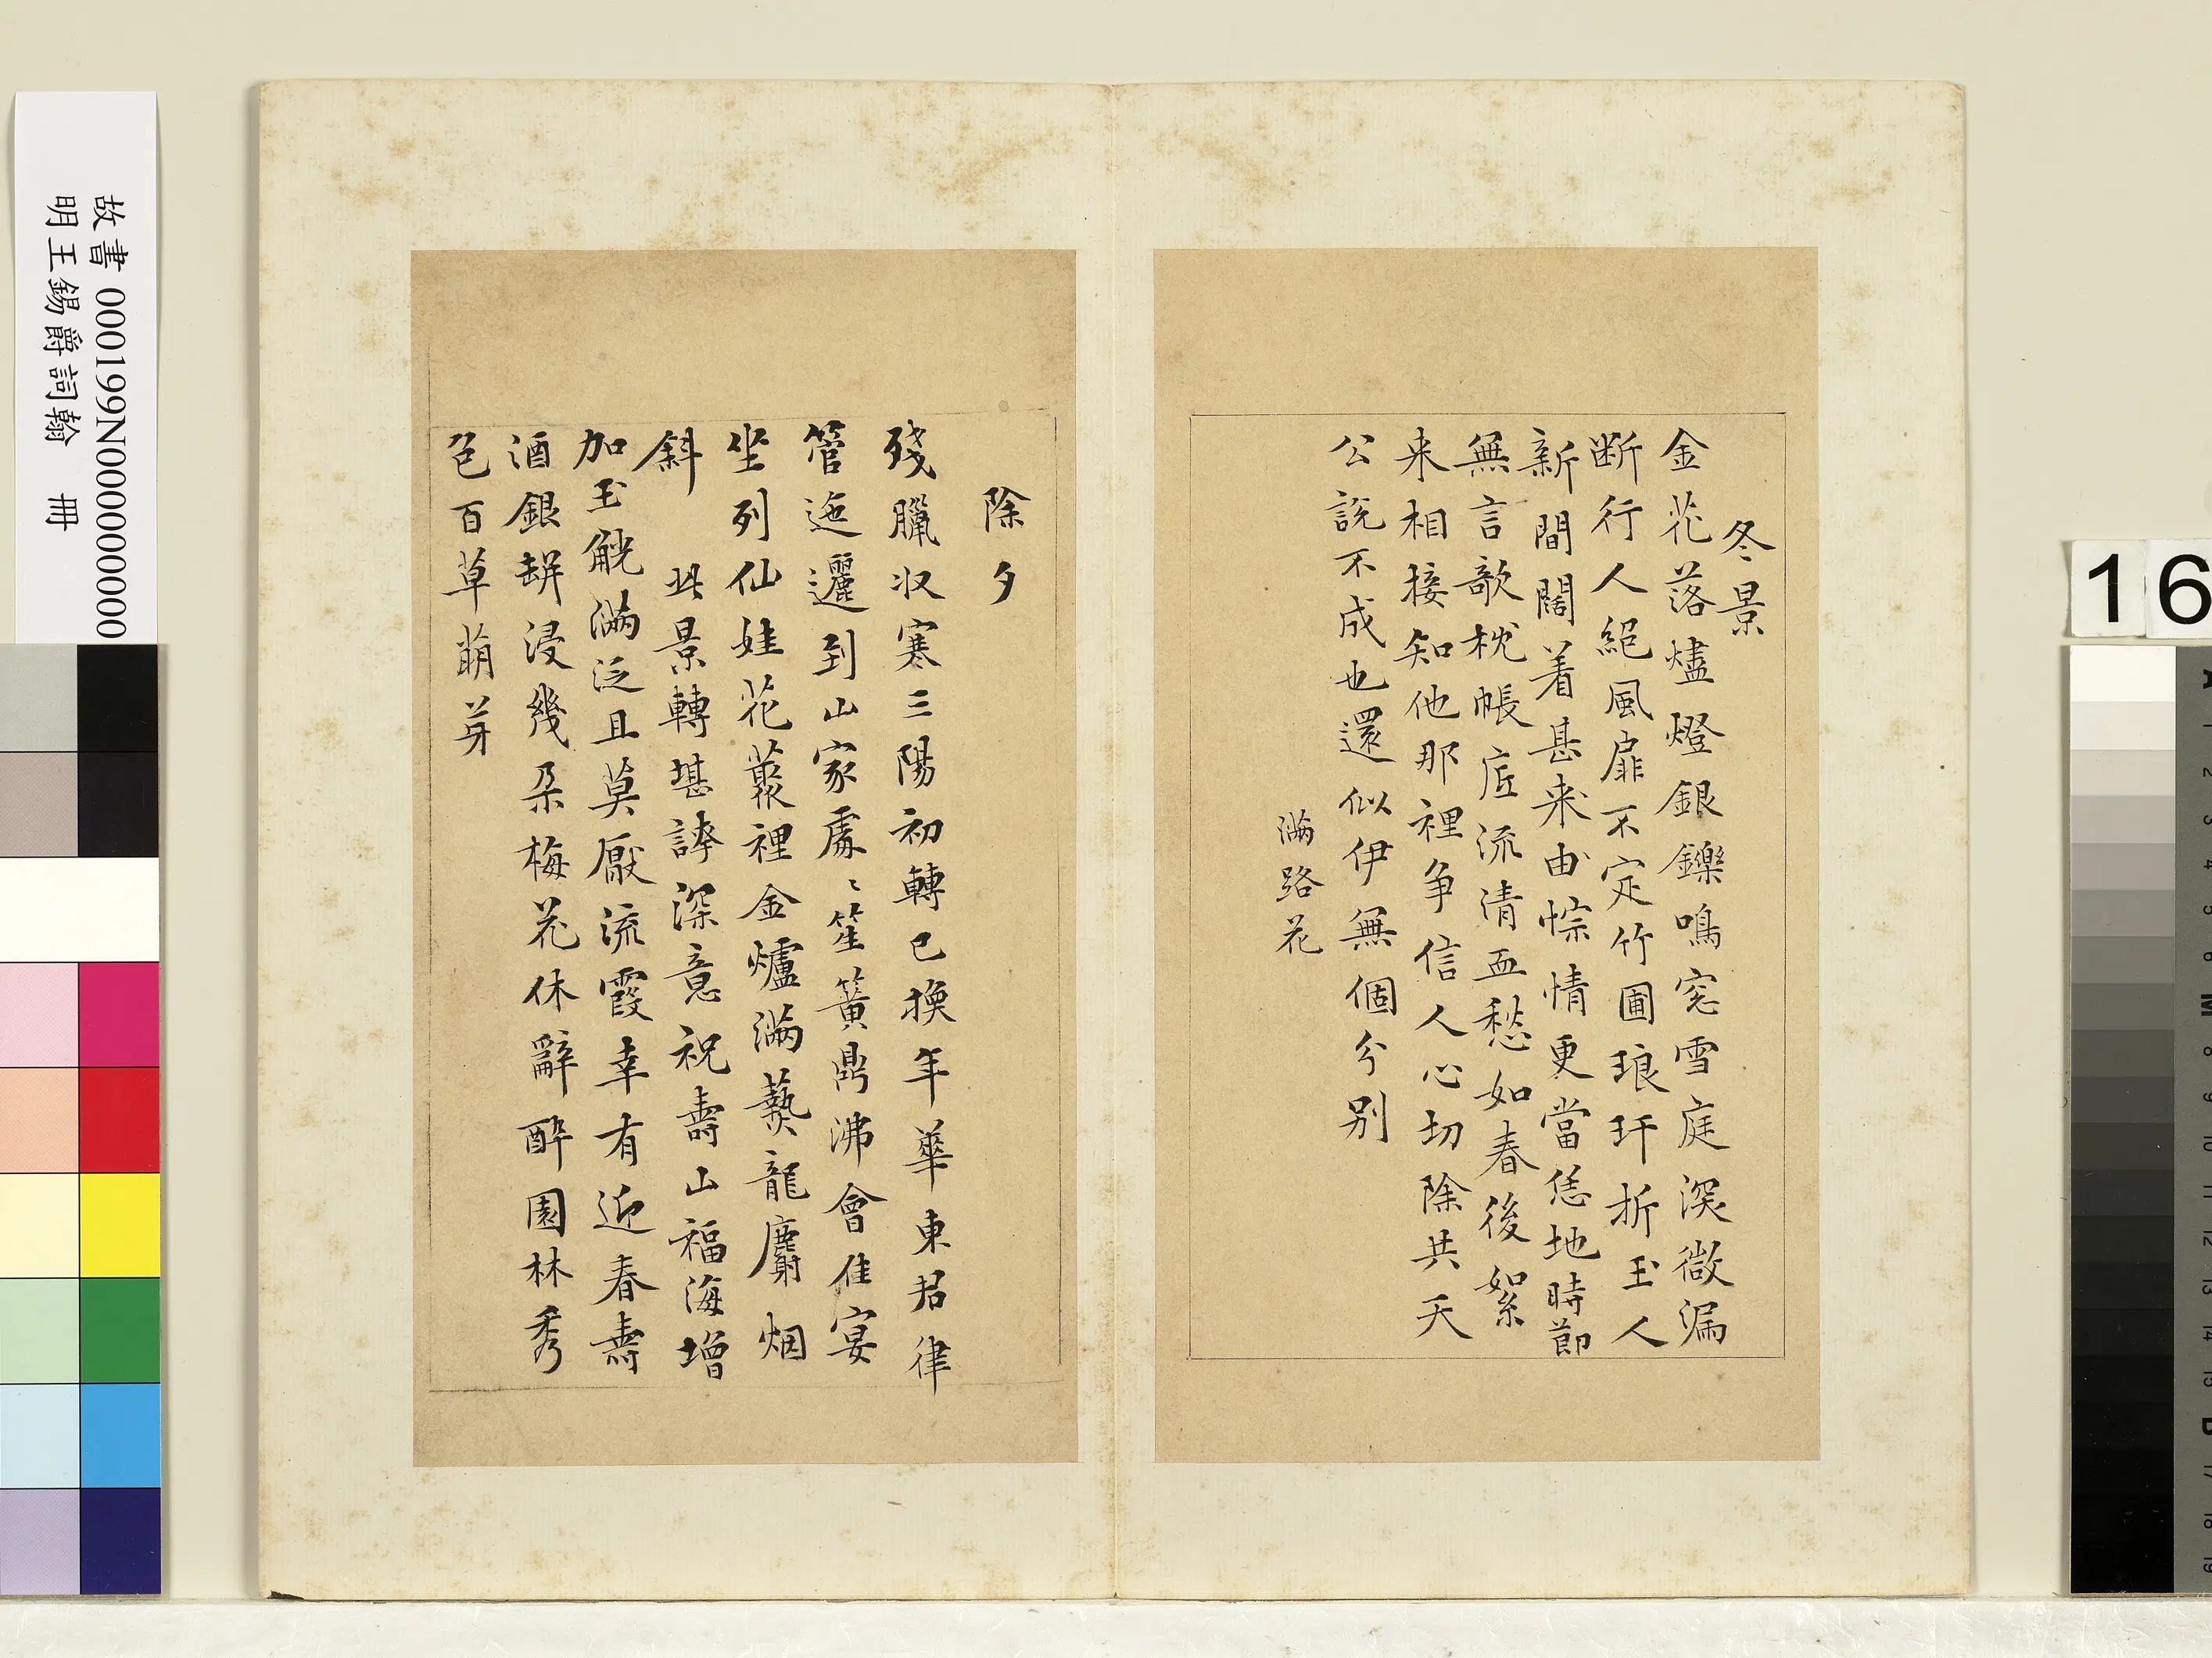 冬景
金花落燼燈銀鑠鳴窓雪庭深微漏
断行人絕風扉不定竹圃琅玕折玉人
新間闊着甚来由悰情更當恁地時節
無言欹枕帳底流清血愁如春後絮
来相接知他那裡争信人心切除共天
公說不成也還似伊無個分別
滿路花
除夕
殘臘収寒三陽初轉已換年華東君律
管迤邐到山家處〻笙簧鼎沸會佳宴
坐列仙娃花叢裡金爐滿爇龍麝烟
斜 此景轉堪誇深意祝壽山福海增
加玉觥滿泛且莫厭流霞幸有近春壽
酒銀缾浸幾朶梅花休辭醉園林秀
色百草萌芽
故書 000199N000000000
明王錫爵詞翰 冊
16